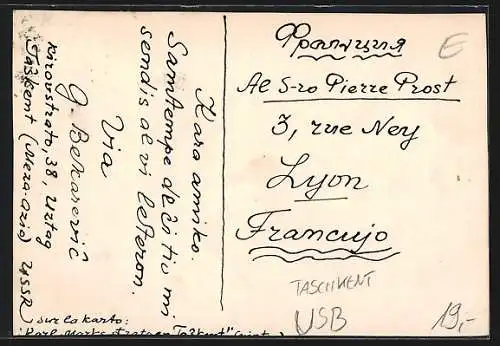 Kara amiko.
Samtempe de ĉi tiu mi
sendis al vi leteron.
Via
G. Bekareviĉ
Kirovstrato, 38, Urtag
Taŝkent (Meza-azio) USSR
sur la karto:
"Karl Marks strato en Taŝkent"
Франция
Al S-ro Pierre Prost
3, rue Ney
Lyon
Francujo
E
TASCHKENT
USB
19,-